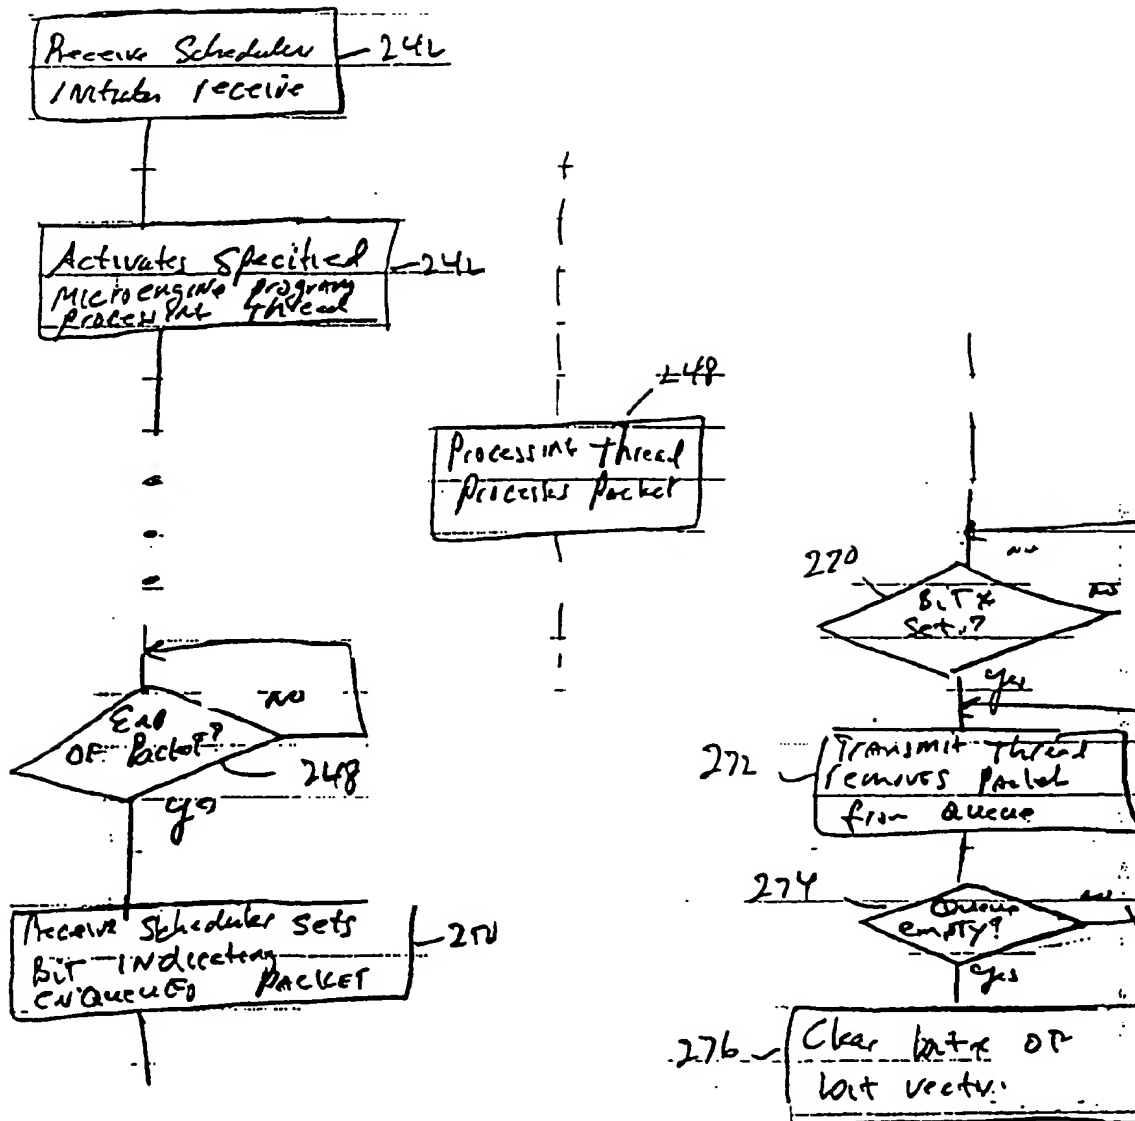 Receive Scheduler
Initiates receive
242
Activates Specified
Microengine program
Processing thread
242
248
Processing thread
Processes Packet
End
OF Packet?
NO
248
yes
Receive Scheduler sets
BIT INdicating
ENQUEUED PACKET
250
270
BiT x
Set?
no
no
yes
272
Transmit thread
removes Packet
from Queue
274
Queue
empty?
no
yes
276
Clear bit x OF
bit vector